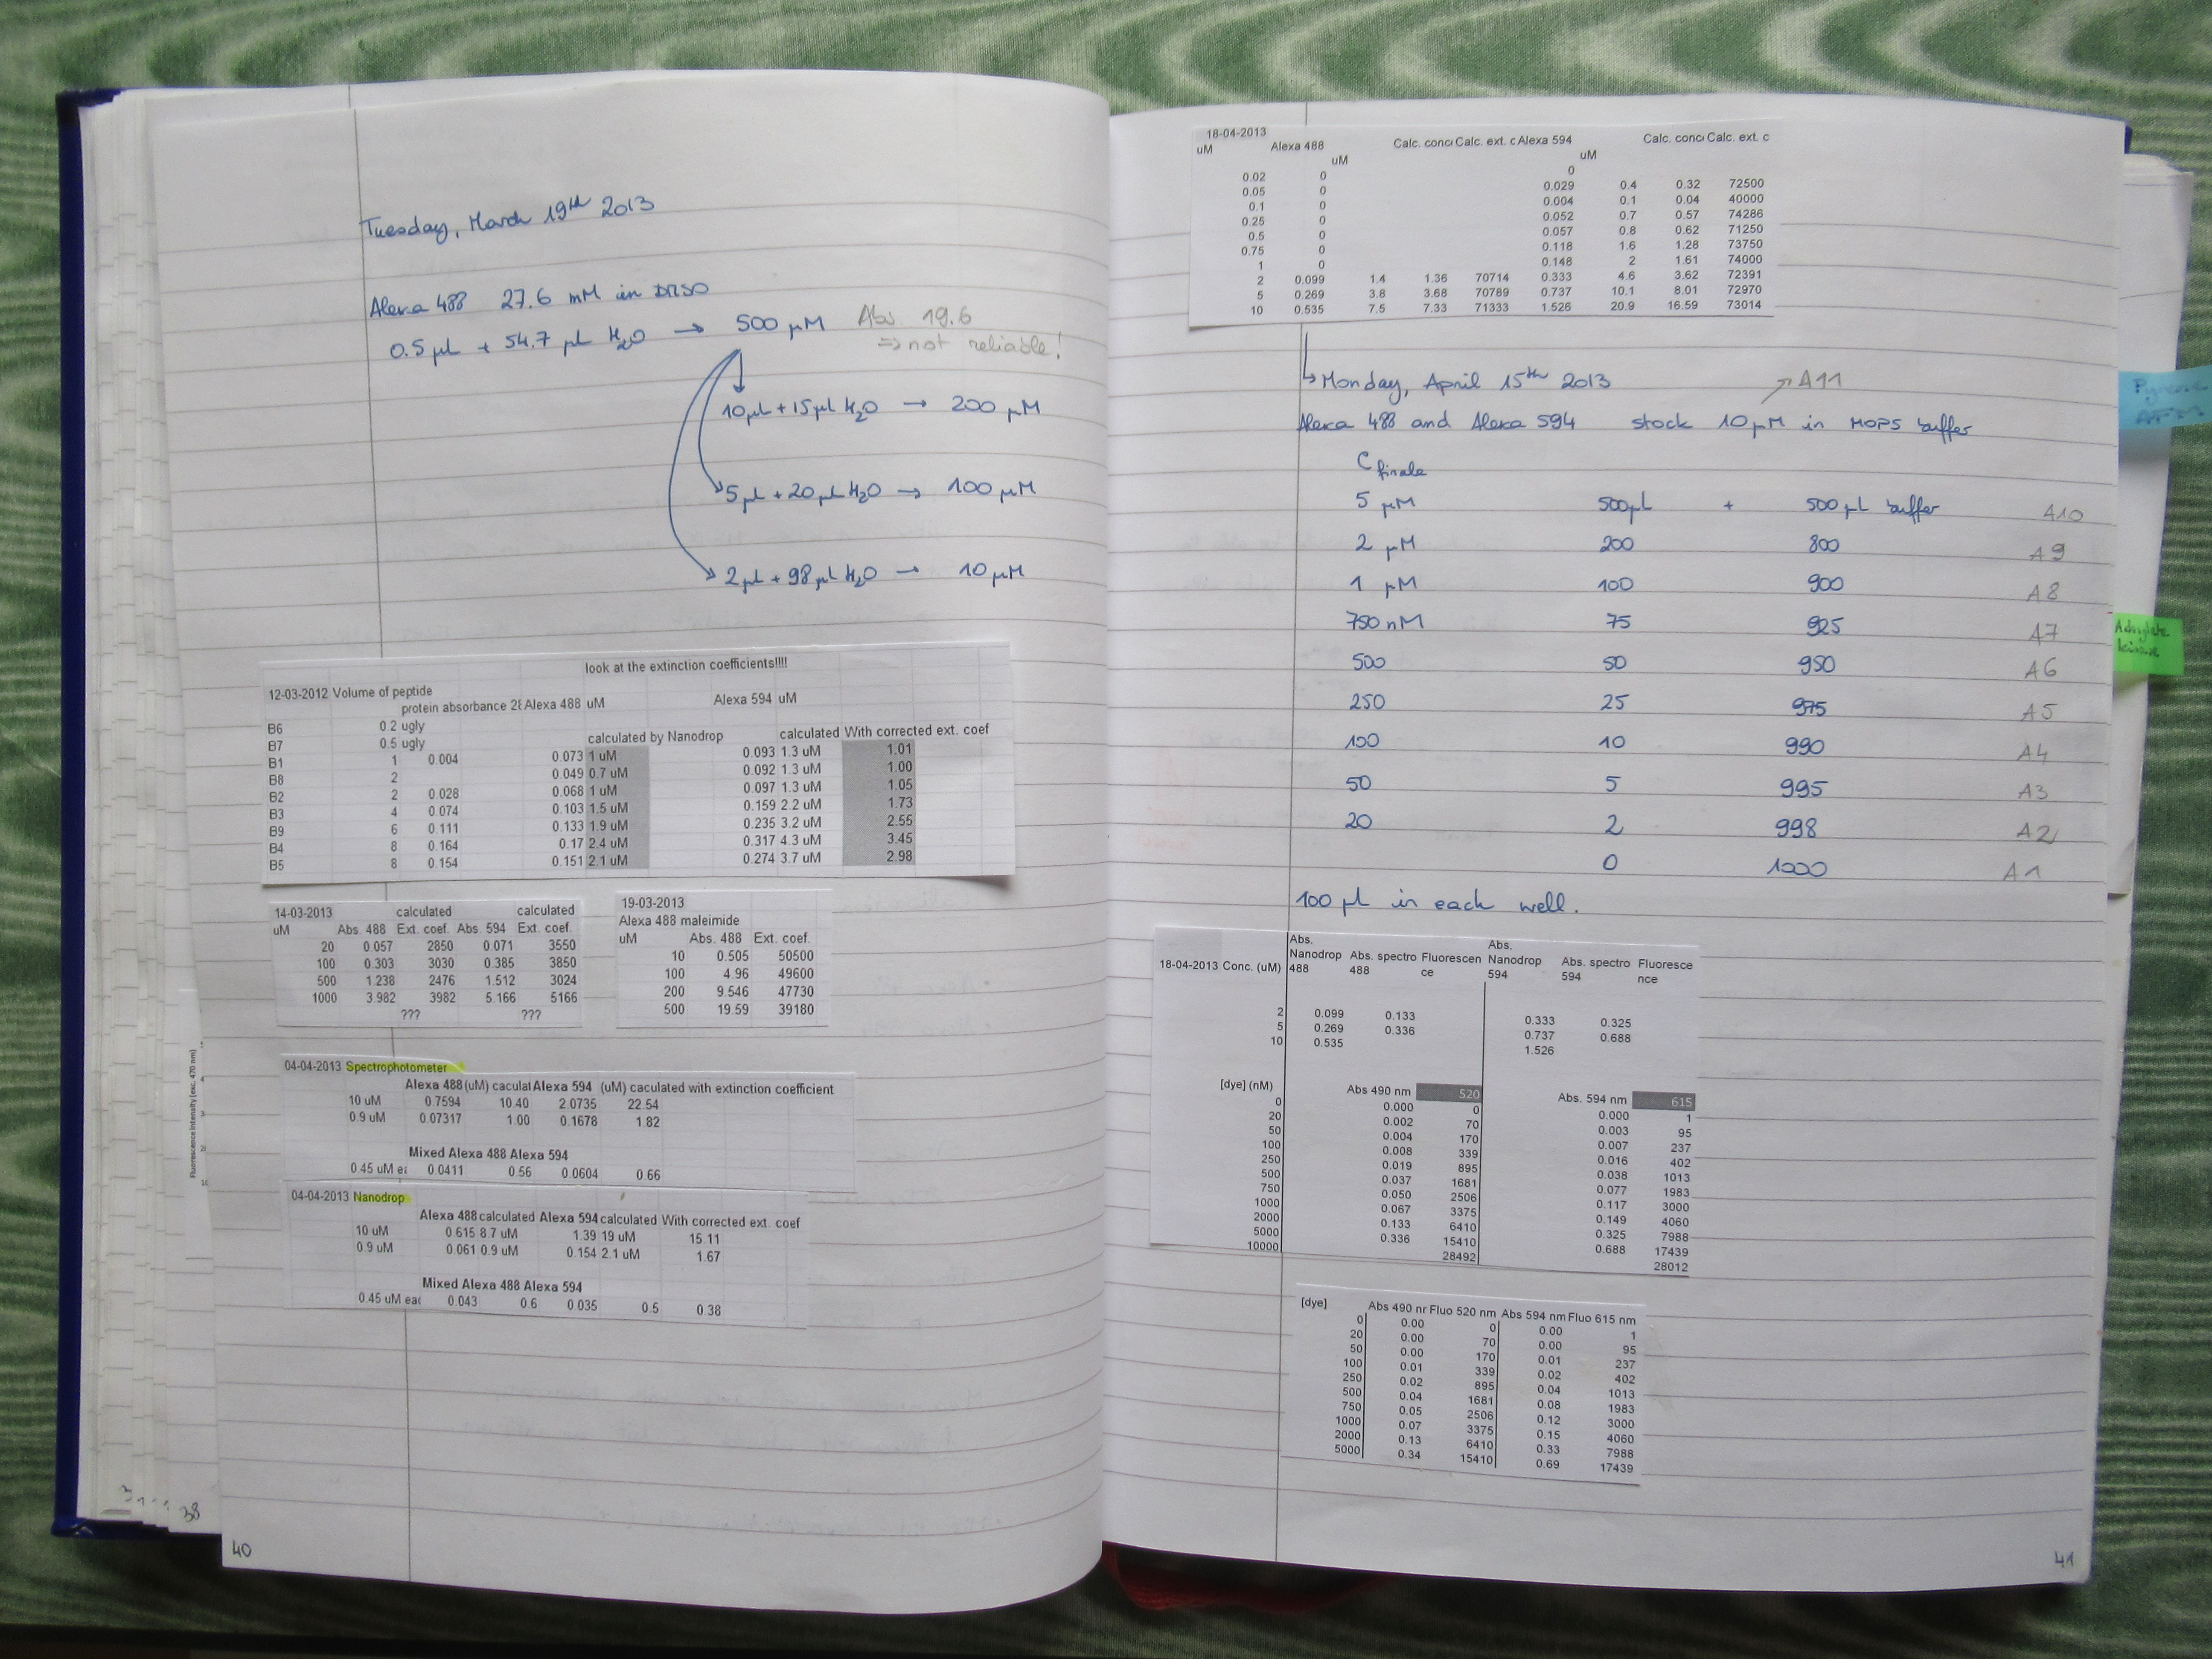 Tuesday, March 19th 2013
Alexa 488 27.6 mM in DMSO
0.5 µL + 54.7 µL H2O → 500 µM Abs 19.6
⇒ not reliable!
10µL + 15µL H2O → 200 µM
5µL + 20µL H2O → 100 µM
2µL + 98µL H2O → 10 µM
look at the extinction coefficients!!!!
12-03-2012 Volume of peptide
protein absorbance 28 Alexa 488 uM Alexa 594 uM
B6 0.2 ugly
B7 0.5 ugly calculated by Nanodrop calculated With corrected ext. coef
B1 1 0.004 0.073 1 uM 0.093 1.3 uM 1.01
B8 2 0.049 0.7 uM 0.092 1.3 uM 1.00
B2 2 0.028 0.068 1 uM 0.097 1.3 uM 1.05
B3 4 0.074 0.103 1.5 uM 0.159 2.2 uM 1.73
B9 6 0.111 0.133 1.9 uM 0.235 3.2 uM 2.55
B4 8 0.164 0.17 2.4 uM 0.317 4.3 uM 3.45
B5 8 0.154 0.151 2.1 uM 0.274 3.7 uM 2.98
14-03-2013 calculated calculated
uM Abs. 488 Ext. coef. Abs. 594 Ext. coef.
20 0.057 2850 0.071 3550
100 0.303 3030 0.385 3850
500 1.238 2476 1.512 3024
1000 3.982 3982 5.166 5166
??? ???
19-03-2013
Alexa 488 maleimide
uM Abs. 488 Ext. coef.
10 0.505 50500
100 4.96 49600
200 9.546 47730
500 19.59 39180
04-04-2013 Spectrophotometer
Alexa 488 (uM) caculat Alexa 594 (uM) caculated with extinction coefficient
10 uM 0.7594 10.40 2.0735 22.54
0.9 uM 0.07317 1.00 0.1678 1.82
Mixed Alexa 488 Alexa 594
0.45 uM ea 0.0411 0.56 0.0604 0.66
04-04-2013 Nanodrop
Alexa 488 calculated Alexa 594 calculated With corrected ext. coef
10 uM 0.615 8.7 uM 1.39 19 uM 15.11
0.9 uM 0.061 0.9 uM 0.154 2.1 uM 1.67
Mixed Alexa 488 Alexa 594
0.45 uM eac 0.043 0.6 0.035 0.5 0.38
Fluorescence intensity (exc. 470 nm)
38
40
18-04-2013
uM Alexa 488 uM Calc. conc Calc. ext. c Alexa 594 uM Calc. conc Calc. ext. c
0
0.02 0 0.029 0.4 0.32 72500
0.05 0 0.004 0.1 0.04 40000
0.1 0 0.052 0.7 0.57 74286
0.25 0 0.057 0.8 0.62 71250
0.5 0 0.118 1.6 1.28 73750
0.75 0 0.148 2 1.61 74000
1 0 0.333 4.6 3.62 72391
2 0.099 1.4 1.36 70714 0.737 10.1 8.01 72970
5 0.269 3.8 3.68 70789 1.526 20.9 16.59 73014
10 0.535 7.5 7.33 71333
↳ Monday, April 15th 2013 ↗ A11
Alexa 488 and Alexa 594 stock 10 µM in MOPS buffer
C finale
5 µM 500µL + 500 µL buffer A10
2 µM 200 800 A9
1 µM 100 900 A8
750 nM 75 925 A7
500 50 950 A6
250 25 975 A5
100 10 990 A4
50 5 995 A3
20 2 998 A2
0 1000 A1
100 µL in each well.
18-04-2013 Conc. (uM) Abs. Nanodrop 488 Abs. spectro 488 Fluorescence Abs. Nanodrop 594 Abs. spectro 594 Fluorescence
2 0.099 0.133 0.333 0.325
5 0.269 0.336 0.737 0.688
10 0.535 1.526
[dye] (nM) Abs 490 nm 520 Abs. 594 nm 615
0 0.000 0 0.000 1
20 0.002 70 0.003 95
50 0.004 170 0.007 237
100 0.008 339 0.016 402
250 0.019 895 0.038 1013
500 0.037 1681 0.077 1983
750 0.050 2506 0.117 3000
1000 0.067 3375 0.149 4060
2000 0.133 6410 0.325 7988
5000 0.336 15410 0.688 17439
10000 28492 28012
[dye] Abs 490 nr Fluo 520 nm Abs 594 nm Fluo 615 nm
0 0.00 0 0.00 1
20 0.00 70 0.00 95
50 0.00 170 0.01 237
100 0.01 339 0.02 402
250 0.02 895 0.04 1013
500 0.04 1681 0.08 1983
750 0.05 2506 0.12 3000
1000 0.07 3375 0.15 4060
2000 0.13 6410 0.33 7988
5000 0.34 15410 0.69 17439
AFM
Adenylate
kinase
41